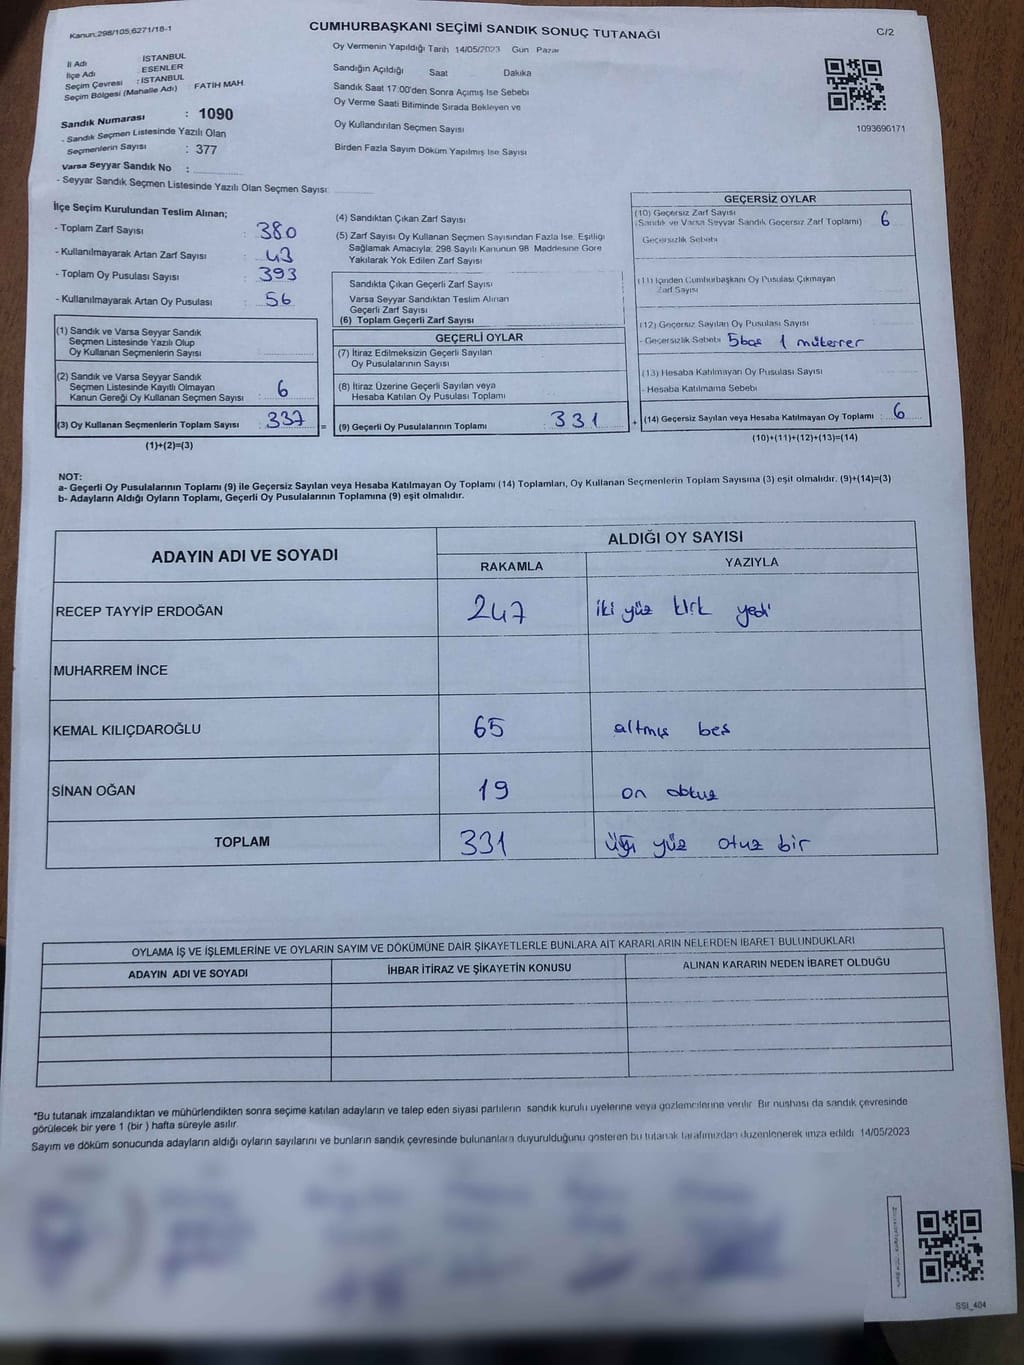 Kanun;298/105;6271/18-1
CUMHURBAŞKANI SEÇİMİ SANDIK SONUÇ TUTANAĞI
C/2
İl Adı İSTANBUL
İlçe Adı : ESENLER
Seçim Çevresi : İSTANBUL
Seçim Bölgesi (Mahalle Adı) FATİH MAH
Sandık Numarası : 1090
- Sandık Seçmen Listesinde Yazılı Olan
Seçmenlerin Sayısı : 377
Varsa Seyyar Sandık No :
- Seyyar Sandık Seçmen Listesinde Yazılı Olan Seçmen Sayısı:
Oy Vermenin Yapıldığı Tarih 14/05/2023 Gün Pazar
Sandığın Açıldığı Saat Dakika
Sandık Saat 17:00'den Sonra Açımış İse Sebebi
Oy Verme Saati Bitiminde Sırada Bekleyen ve
Oy Kullandırılan Seçmen Sayısı
Birden Fazla Sayım Döküm Yapılmış İse Sayısı
1093696171
İlçe Seçim Kurulundan Teslim Alınan;
- Toplam Zarf Sayısı : 380
- Kullanılmayarak Artan Zarf Sayısı : 43
- Toplam Oy Pusulası Sayısı : 393
- Kullanılmayarak Artan Oy Pusulası : 56
(1) Sandık ve Varsa Seyyar Sandık
Seçmen Listesinde Yazılı Olup
Oy Kullanan Seçmenlerin Sayısı
(2) Sandık ve Varsa Seyyar Sandık
Seçmen Listesinde Kayıtlı Olmayan
Kanun Gereği Oy Kullanan Seçmen Sayısı : 6
(3) Oy Kullanan Seçmenlerin Toplam Sayısı : 337 =
(1)+(2)=(3)
(4) Sandıktan Çıkan Zarf Sayısı
(5) Zarf Sayısı Oy Kullanan Seçmen Sayısından Fazla İse, Eşitliği
Sağlamak Amacıyla; 298 Sayılı Kanunun 98 Maddesine Göre
Yakılarak Yok Edilen Zarf Sayısı
Sandıkta Çıkan Geçerli Zarf Sayısı
Varsa Seyyar Sandıktan Teslim Alınan
Geçerli Zarf Sayısı
(6) Toplam Geçerli Zarf Sayısı
GEÇERLİ OYLAR
(7) İtiraz Edilmeksizin Geçerli Sayılan
Oy Pusulalarının Sayısı
(8) İtiraz Üzerine Geçerli Sayılan veya
Hesaba Katılan Oy Pusulası Toplamı
(9) Geçerli Oy Pusulalarının Toplamı 331 +
GEÇERSİZ OYLAR
(10) Geçersiz Zarf Sayısı
(Sandık ve Varsa Seyyar Sandık Geçersiz Zarf Toplamı) 6
Geçersizlik Sebebi
(11) İçinden Cumhurbaşkanı Oy Pusulası Çıkmayan
Zarf Sayısı
(12) Geçersiz Sayılan Oy Pusulası Sayısı
- Geçersizlik Sebebi 5 boş 1 müterrer
(13) Hesaba Katılmayan Oy Pusulası Sayısı
- Hesaba Katılmama Sebebi
(14) Geçersiz Sayılan veya Hesaba Katılmayan Oy Toplamı : 6
(10)+(11)+(12)+(13)=(14)
NOT:
a- Geçerli Oy Pusulalarının Toplamı (9) ile Geçersiz Sayılan veya Hesaba Katılmayan Oy Toplamı (14) Toplamları, Oy Kullanan Seçmenlerin Toplam Sayısına (3) eşit olmalıdır. (9)+(14)=(3)
b- Adayların Aldığı Oyların Toplamı, Geçerli Oy Pusulalarının Toplamına (9) eşit olmalıdır.
ADAYIN ADI VE SOYADI
ALDIĞI OY SAYISI
RAKAMLA YAZIYLA
RECEP TAYYİP ERDOĞAN 247 iki yüz kırk yedi
MUHARREM İNCE
KEMAL KILIÇDAROĞLU 65 altmış beş
SİNAN OĞAN 19 on dokuz
TOPLAM 331 üç yüz otuz bir
OYLAMA İŞ VE İŞLEMLERİNE VE OYLARIN SAYIM VE DÖKÜMÜNE DAİR ŞİKAYETLERLE BUNLARA AİT KARARLARIN NELERDEN İBARET BULUNDUKLARI
ADAYIN ADI VE SOYADI İHBAR İTİRAZ VE ŞİKAYETİN KONUSU ALINAN KARARIN NEDEN İBARET OLDUĞU
*Bu tutanak imzalandıktan ve mühürlendikten sonra seçime katılan adayların ve talep eden siyasi partilerin sandık kurulu üyelerine veya gözlemcilerine verilir. Bir nüshası da sandık çevresinde
görülecek bir yere 1 (bir ) hafta süreyle asılır.
Sayım ve döküm sonucunda adayların aldığı oyların sayılarını ve bunların sandık çevresinde bulunanlara duyurulduğunu gösteren bu tutanak tarafımızdan düzenlenerek imza edildi. 14/05/2023
SSI_404